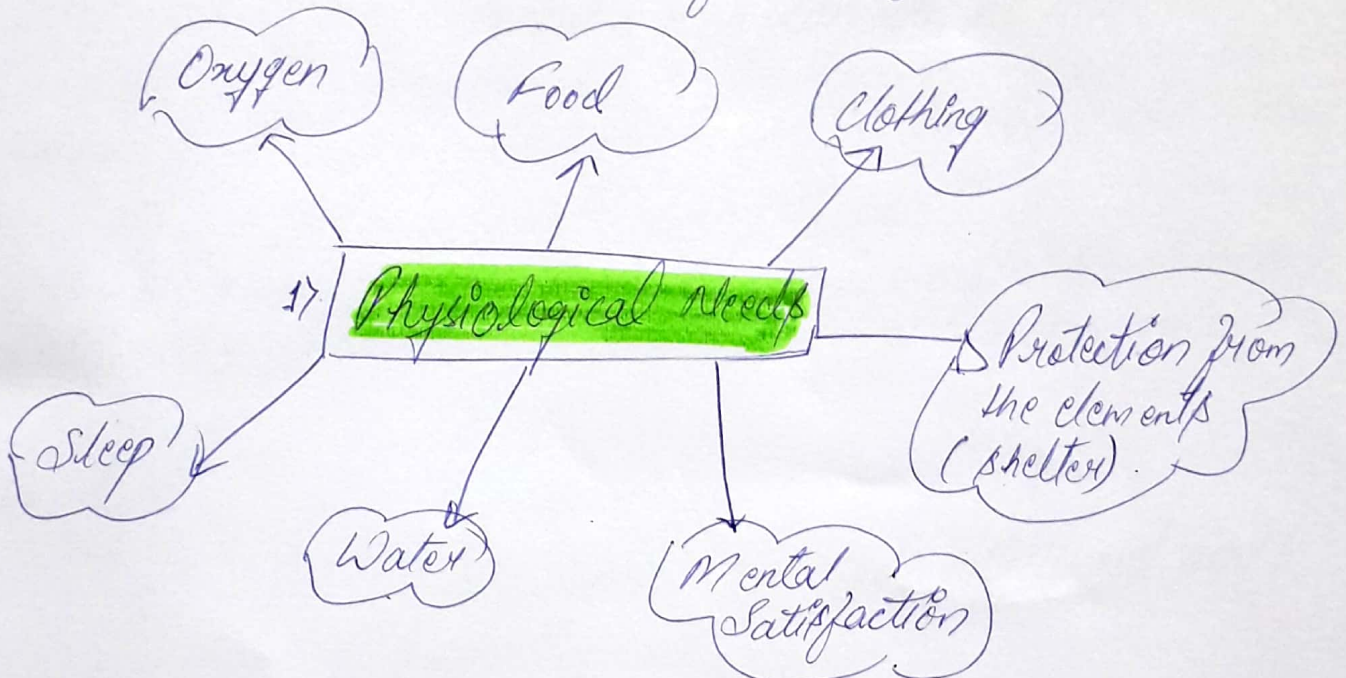 Oxygen
Food
Clothing
1) Physiological Needs
Protection from
the elements
(shelter).
Sleep
Water
Mental
Satisfaction